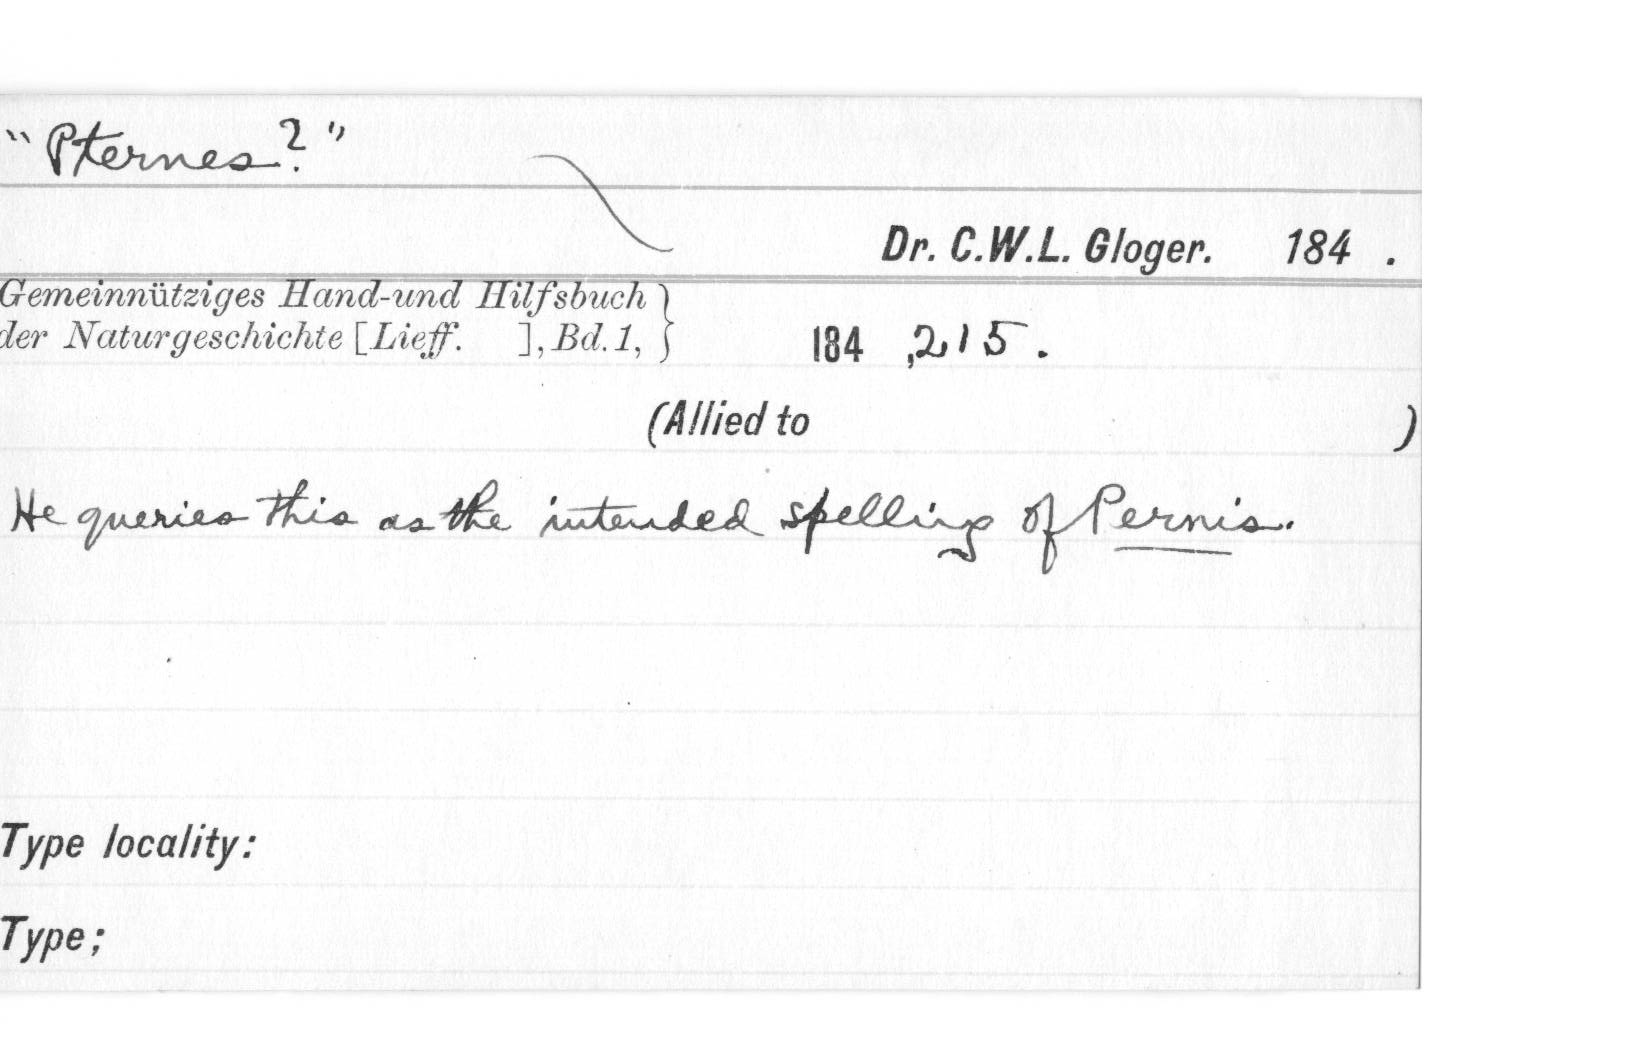 "Pternes?"
Dr. C.W.L. Gloger. 184 .
Gemeinnütziges Hand-und Hilfsbuch
der Naturgeschichte [Lieff. ], Bd. 1, } 184 , 215.
(Allied to )
He queries this as the intended spelling of Pernis.
Type locality:
Type;